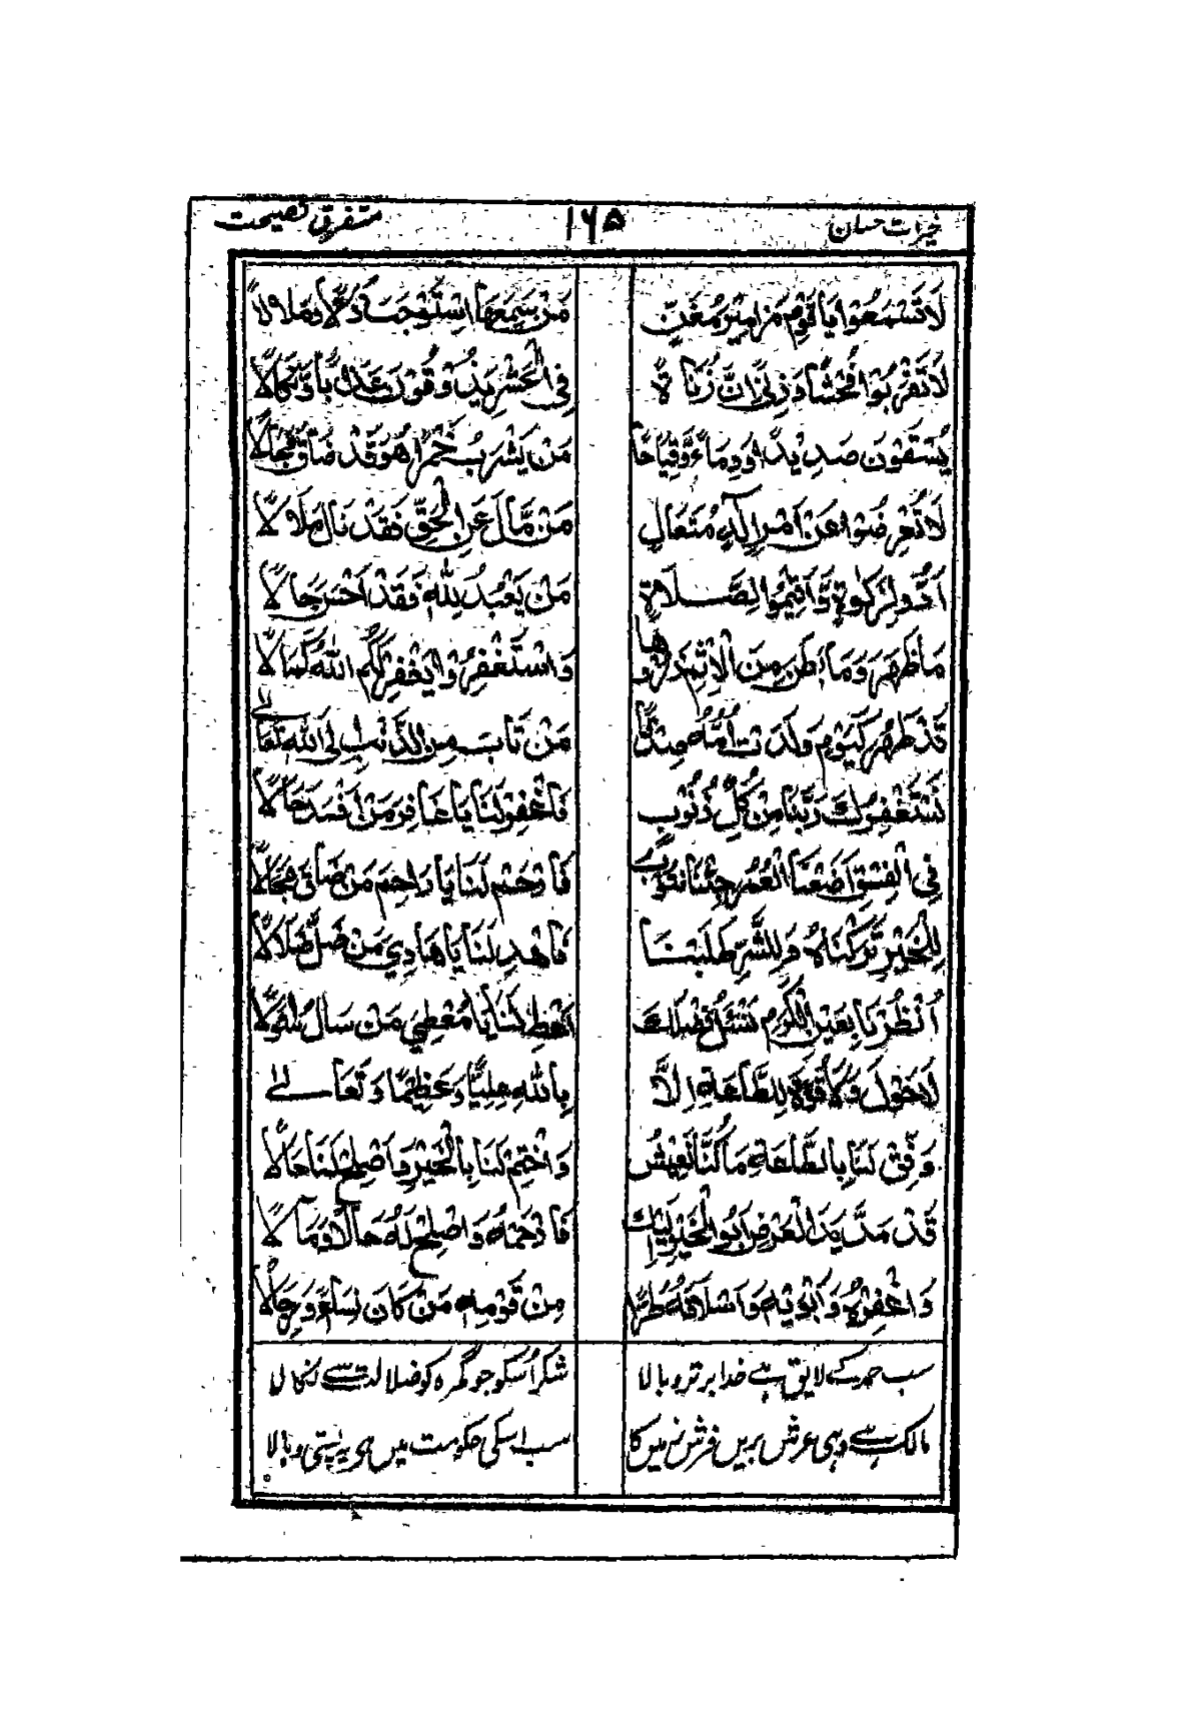 خیرات حسان ۱۶۵ متفرق نصیحت
لَا تَسْمَعُوْا يَا قَوْمِ مَزَامِيْرَ مُغَنٍّ مَنْ يَسْمَعُهَا اسْتَوْجَبَ
لَا تَقْرَبُوْا فُحْشًا وَزِنًى اِنَّ زُنَاةً فِي الْحَشْرِ يَذُوْقُوْنَ عَذَابًا وَّنَكَالًا
يُسْقَوْنَ صَدِيْدًا وَدِمَاءً وَّقِيَاحًا مَنْ يَشْرَبُ خَمْرًا هُوَ قَدْ ضَاقَ مَجَالًا
لَا تُعْرِضُوْا عَنْ اَمْرِ اِلٰهٍ مُتَعَالٍ مَنْ مَّالَ عَنِ الْحَقِّ فَقَدْ نَالَ مَلَالًا
اَدُّوا لِزَكٰوةٍ وَّاَقِيْمُوا لِصَّلَاةٍ مَنْ يَعْبُدُ لِلّٰهِ فَقَدْ اَحْسَنَ حَالًا
مَا ظَهَرَ وَمَا بَطَنَ مِنَ الْاِثْمِ ذَرُوْهَا وَاسْتَغْفِرُوْا يَغْفِرْ لَكُمُ اللّٰهُ كَمَالًا
قَدْ طَهُرَ كَيَوْمٍ وَلَدَتْ اُمُّهُ مِنْهُ مَنْ تَابَ مِنَ الذَّنْبِ اِلَى اللّٰهِ تَعَالٰى
نَسْتَغْفِرُكَ رَبَّنَا مِنْ كُلِّ ذُنُوْبٍ فَاغْفِرْ لَنَا يَا غَافِرَ مَنْ اَفْسَدَ حَالًا
فِي الْفِسْقِ اَضَعْنَا الْعُمْرَ جِئْنَا نَتُوْبُ فَارْحَمْ لَنَا يَا رَاحِمَ مَنْ ضَاقَ مَجَالًا
لِلْخَيْرِ تَرَكْنَاهُ وَلِلشَّرِّ طَلَبْنَا فَاهْدِ لَنَا يَا هَادِيَ مَنْ ضَلَّ ضَلَالًا
اُنْظُرْنَا بِعَيْنِ الْكَرَمِ نَسْئَلُ فَضْلَكَ اَعْطِ لَنَا يَا مُعْطِيَ مَنْ سَالَ
لَا حَوْلَ وَلَا قُوَّةَ لِلطَّاعَةِ اِلَّا بِاللّٰهِ عَلِيًّا وَعَظِيْمًا وَتَعَالٰى
وَفِّقْ لَنَا بِالطَّاعَةِ مَا كُنَّا نَعِيْشُ وَاخْتِمْ لَنَا بِالْخَيْرِ وَاَصْلِحْ لَنَا حَالًا
قَدْ مَدَّ يَدَ الْعَرْضِ اَبُو الْخَيْرِ اِلَيْكَ فَارْحَمْهُ وَاَصْلِحْ لَهُ حَالًا وَمَآلًا
وَاغْفِرْهُ وَاَبَوَيْهِ وَاَسْلَافَهُ طُرًّا مِنْ قَوْمِهِ مَنْ كَانَ نِسَاءً وَرِجَالًا
سب حمد کے لایق ہے خدا برتر و بالا شکر اُسکو جو گمرہ کو ضلالت سے نکالا
مالک ہے وہی عرش بریں فرش زمیں کا سب اسکی حکومت میں ہی یہ پستی و بالا